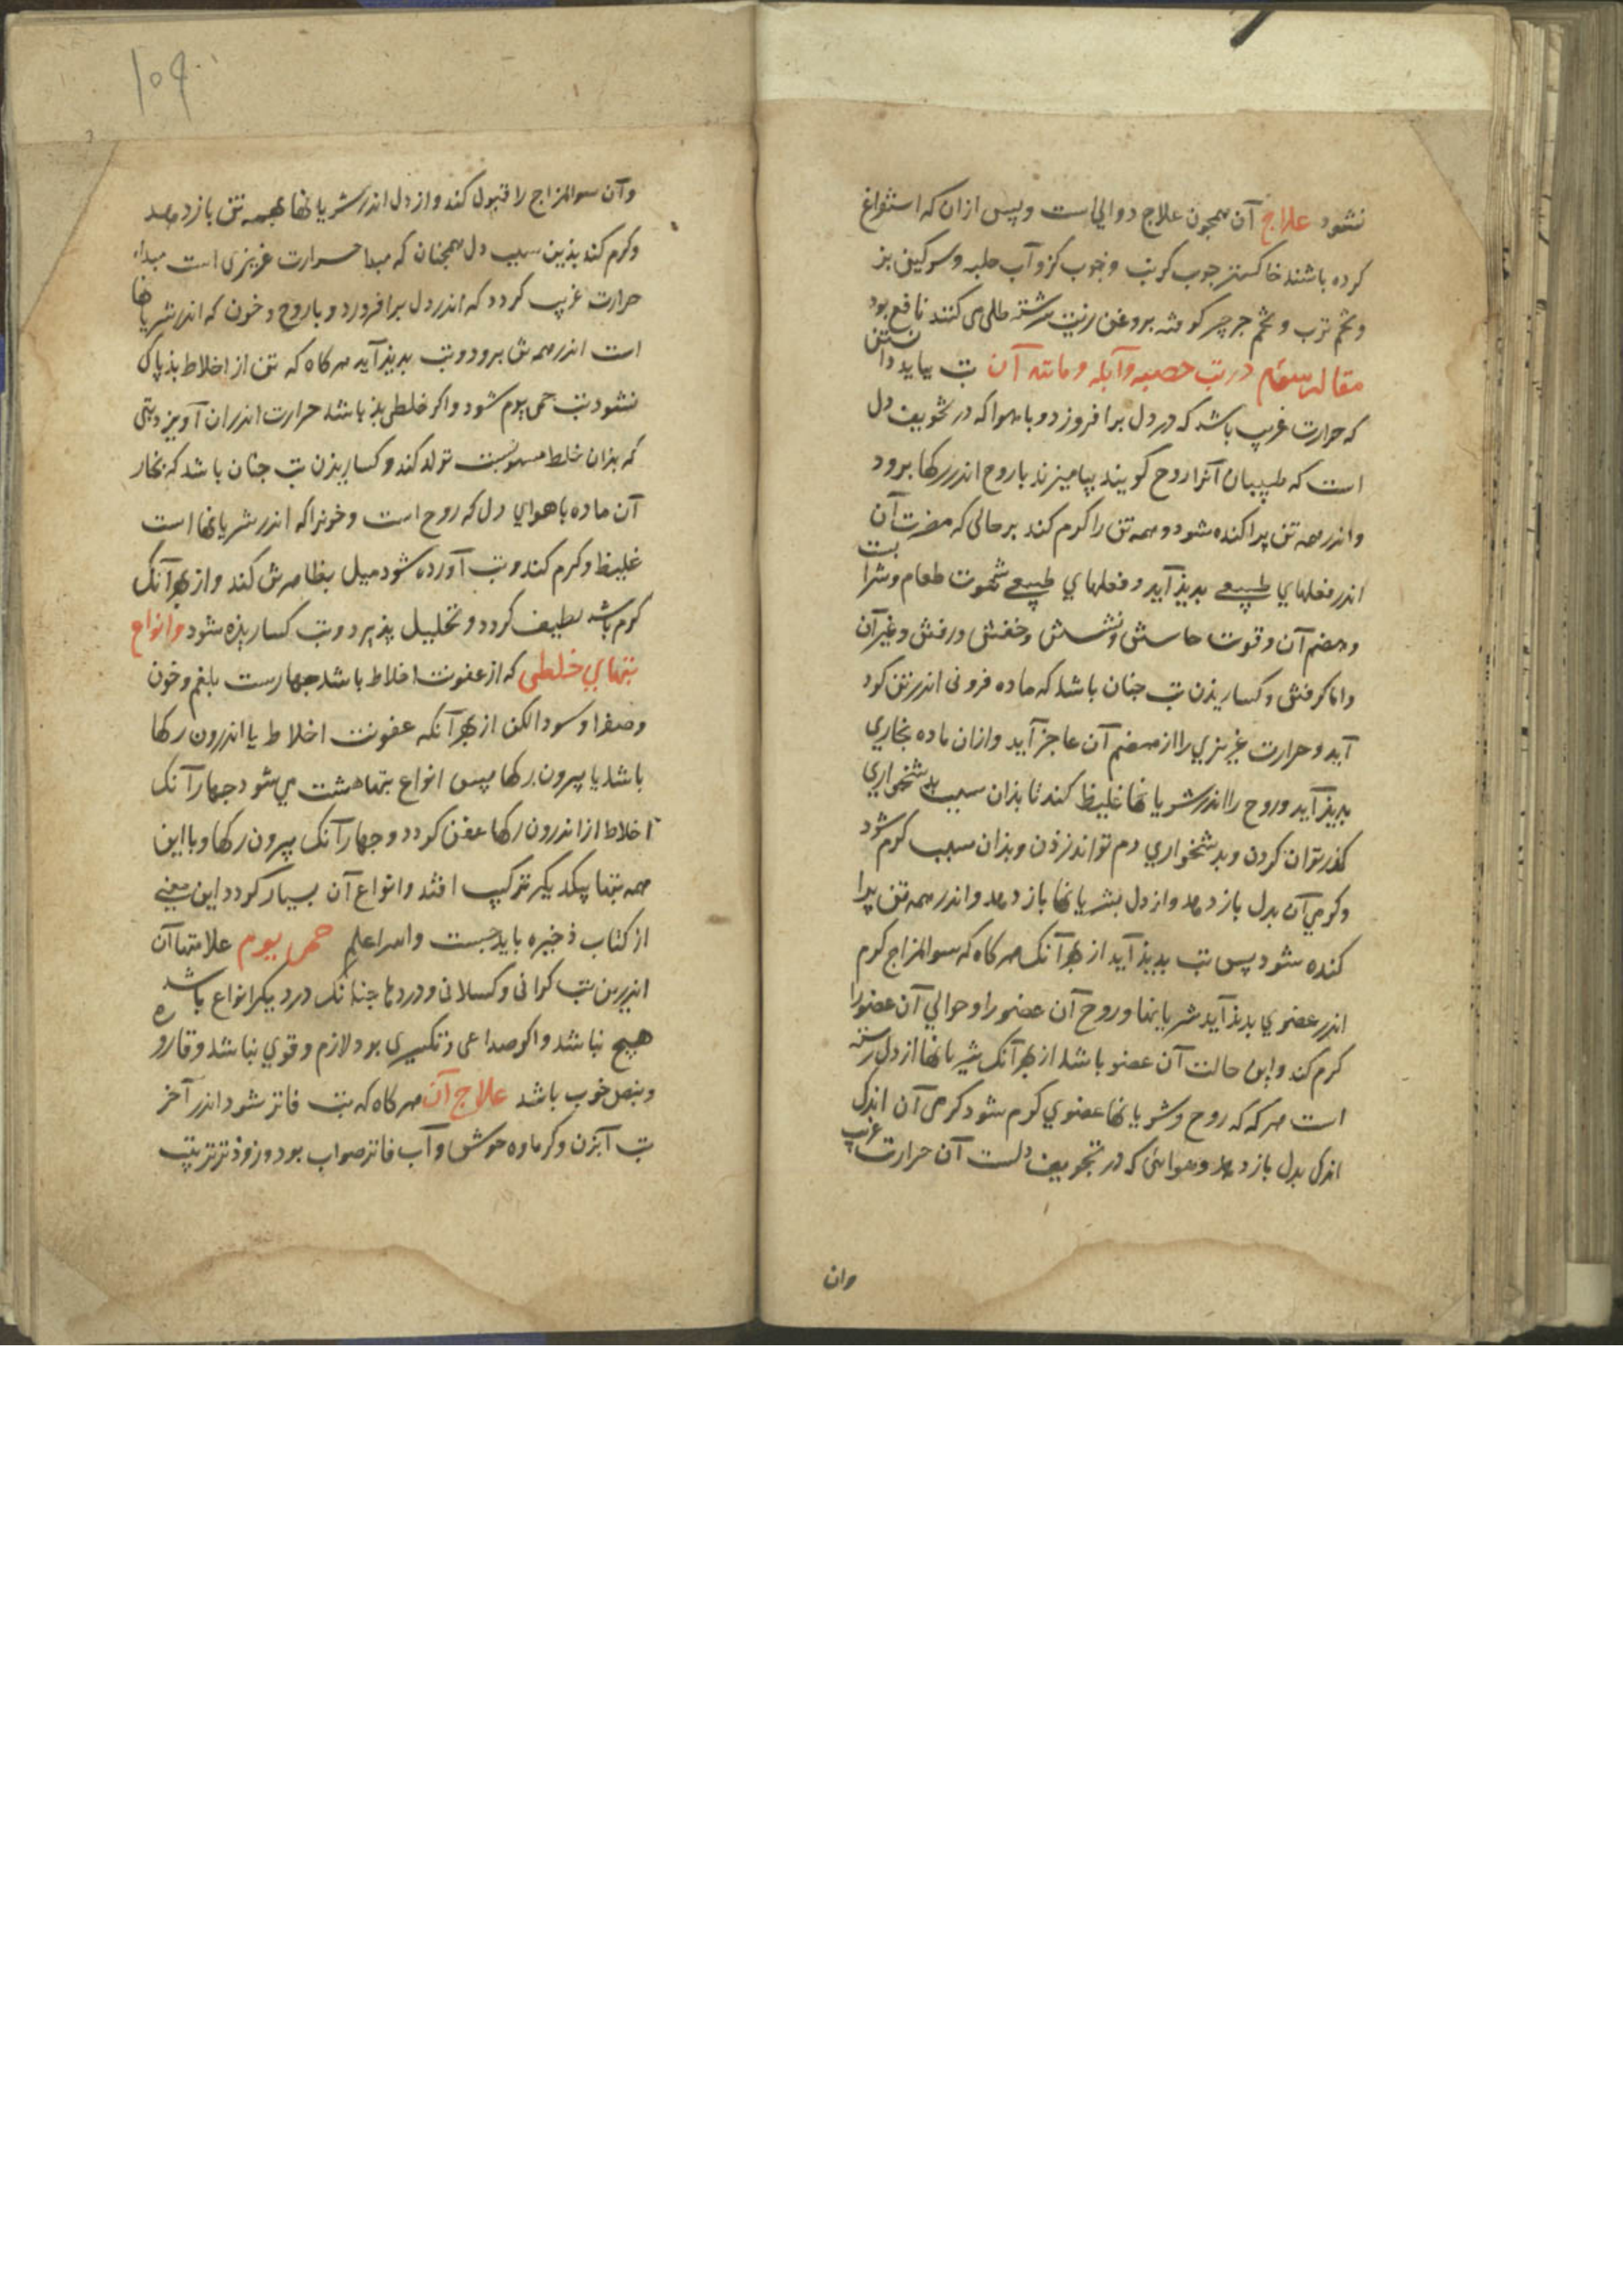 نشود علاج آن همچون علاج دوالی است وپس ازان که استفراغ
کرده باشند خاکستر چوب کرنب و چوب کز و آب حلبه و سرکین بز
و تخم ترب و تخم جرجیر کوفته بروغن زیت سرشته طلی می کنند نافع بود
مقاله سوم در تب حصبه و آبله و مانند آن تب بباید دانستن
که حرارت غریب باشد که در دل برافروزد و با هوا که در تجویف دل
است که طبیبان آنرا روح کویند بیامیزند با روح اندر رکها برود
و اندر همه تن پراکنده شود و همه تن را کرم کند بر حالی که مضرت آن
اندر فعلهای طبیعی بدیذ آید و فعلهای طبیعی شهوت طعام و شراب
و هضم آن و قوت خاستن و نشستن و خفتن و رفتن و غیر آن
و اما کرفتن و کساریذن تب جنان باشد که ماده فزونی اندر تن کرد
آید و حرارت غریزی را از هضم آن عاجز آید و ازان ماده بخاری
بدیذ آید و روح را اندر شریانها غلیظ کند تا بذان سبب بدشخواری
کذر توان کردن و بدشخواری دم تواند زذن و بذان سبب کرم شود
و کرمی آن بدل باز دهد و از دل بشریانها باز دهد و اندر همه تن پرا
کنده شود پس تب بدیذ آید از بهر آنک هرکاه که سوالمزاج کرم
اندر عضوی بدیذ آید شریانها و روح آن عضو را و حوالی آن عضو را
کرم کند و این حالت آن عضو باشد از بهر آنک شریانها از دل رسته
است هرکه که روح و شریانها عضوی کرم شود کرمی آن اندک
اندک بدل باز دهد و هوائی که در تجویف دلست آن حرارت غریب
وان
۱۵۹
وآن سوالمزاج را قبول کند و از دل اندر شریانها بهمه تن باز دهد
و کرم کند بذین سبب دل همچنان که مبدا حرارت غریزی است مبداء
حرارت غریب کردد که اندر دل برافروزد و با روح و خون که اندر شریانها
است اندر همه تن برود و تب بدیذ آید هرکاه که تن از اخلاط بذ پاک
نشود تب حمی یوم شود و اکر خلطی بذ باشد حرارت اندران آویزد و تبی
که بذان خلط منسوبست تولد کند و کساریذن تب جنان باشد که بخار
آن ماده با هوای دل که روح است و خونرا که اندر شریانها است
غلیظ و کرم کند و تب آورده شود میل بظاهرش کند و از بهر آنک
کرم باشد لطیف کردد و تحلیل پذیرد و تب کساریذه شود و انواع
تبهای خلطی که از عفونت اخلاط باشد جهارست بلغم و خون
و صفرا و سودا لکن از بهر آنکه عفونت اخلاط یا اندرون رکها
باشد یا بیرون رکها پس انواع تبها هشت می شود جهار آنک
اخلاط از اندرون رکها عفن کردد و جهار آنک بیرون رکها و با این
همه تبها بیکدیکر ترکیب افتد و انواع آن بسیار کردد این معنی
از کتاب ذخیره باید جست والله اعلم حمی یوم علامتها آن
اندرین تب کرانی و کسلانی و دردها جنانک در دیکر انواع باشد
هیچ نباشد و اکر صداعی و تکسری بود لازم و قوی نباشد و قاروره
و نبض خوب باشد علاج آن هرکاه که تب فاتر شود اندر آخر
تب آبزن و کرماوه خوش و آب فاتر صواب بود و زوذتر